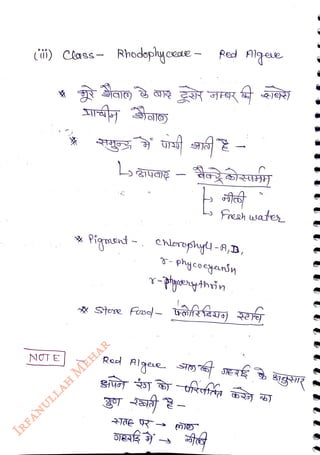 (iii) Class - Rhodophyceae - Red Algeae
* भूरे शैवाल के बाद दूसरे नम्बर की सबसे
प्राचीन शैवाल
* समुन्द्र में पायी जाती है -
↳ अपवाद - बैक्ट्रेकोस्पर्मम
↳ नीली
↳ Fresh water
* Pigment - chlorophyll-A,D,
r-phycocyanin
r-phycoerythrin
* Store Food - फ्लोरिडियन स्टार्च
NOTE
Red Algeae जल की गहराई के अनुसार
अपने रंग को परिवर्तित करने का
गुण रखती है -
सतह पर → लाल
गहराई में → नीली
IRFANULLAH MEHAR